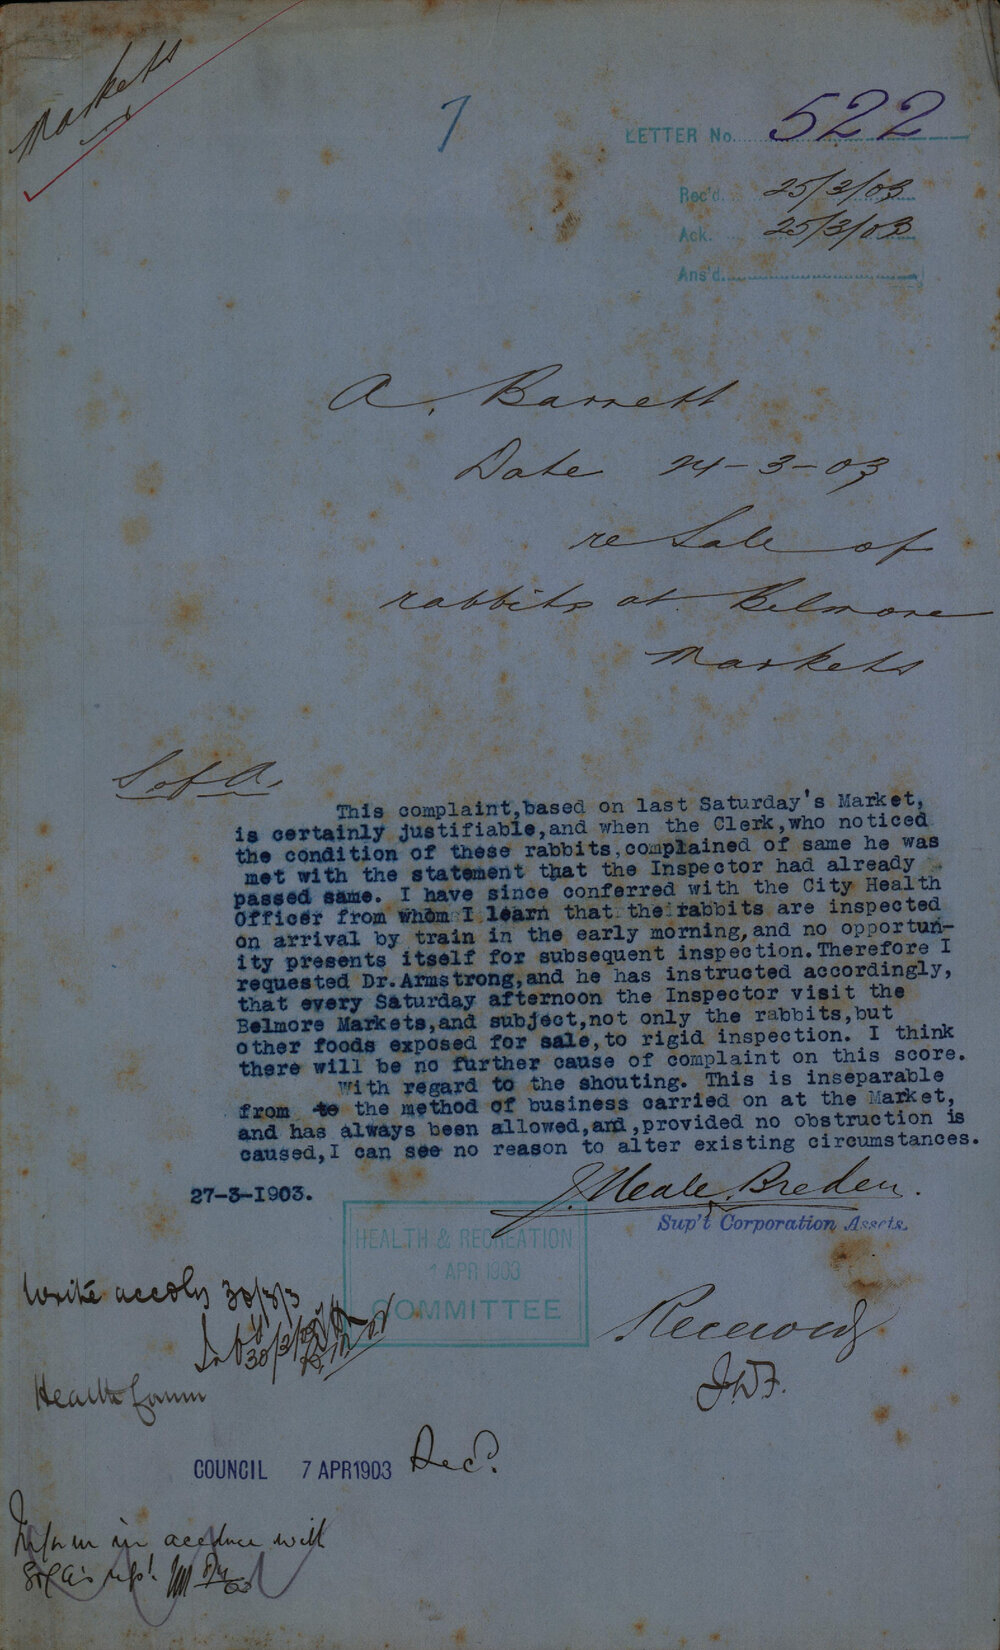 Markets
7
LETTER No. 522
Rec'd. 25/3/03
Ack. 25/3/03
Ans'd.
A. Barrett
Date 24-3-03
re Sale of
rabbits at Belmore
Markets
S of A.
This complaint,based on last Saturday's Market,
is certainly justifiable,and when the Clerk,who noticed
the condition of these rabbits,complained of same he was
met with the statement that the Inspector had already
passed same. I have since conferred with the City Health
Officer from whom I learn that the rabbits are inspected
on arrival by train in the early morning,and no opportun-
ity presents itself for subsequent inspection.Therefore I
requested Dr.Armstrong,and he has instructed accordingly,
that every Saturday afternoon the Inspector visit the
Belmore Markets,and subject,not only the rabbits,but
other foods exposed for sale,to rigid inspection. I think
there will be no further cause of complaint on this score.
With regard to the shouting. This is inseparable
from to the method of business carried on at the Market,
and has always been allowed,and,provided no obstruction is
caused,I can see no reason to alter existing circumstances.
27-3-1903.
J. Neale Breden.
Sup't Corporation Assets.
HEALTH & RECREATION
1 APR 1903
COMMITTEE
Write accdly 30/3/3
30/3/03
Received
Health Comm
COUNCIL 7 APR 1903 Recd.
Inform in accdnce with
S of A's rept.